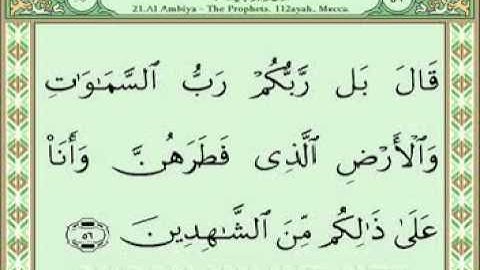 21.Al Ambiya - The Prophets. 112ayah. Mecca.
قَالَ بَل رَّبُّكُمْ رَبُّ ٱلسَّمَـٰوَٰتِ
وَٱلْأَرْضِ ٱلَّذِى فَطَرَهُنَّ وَأَنَا۠
عَلَىٰ ذَٰلِكُم مِّنَ ٱلشَّـٰهِدِينَ ٥٦